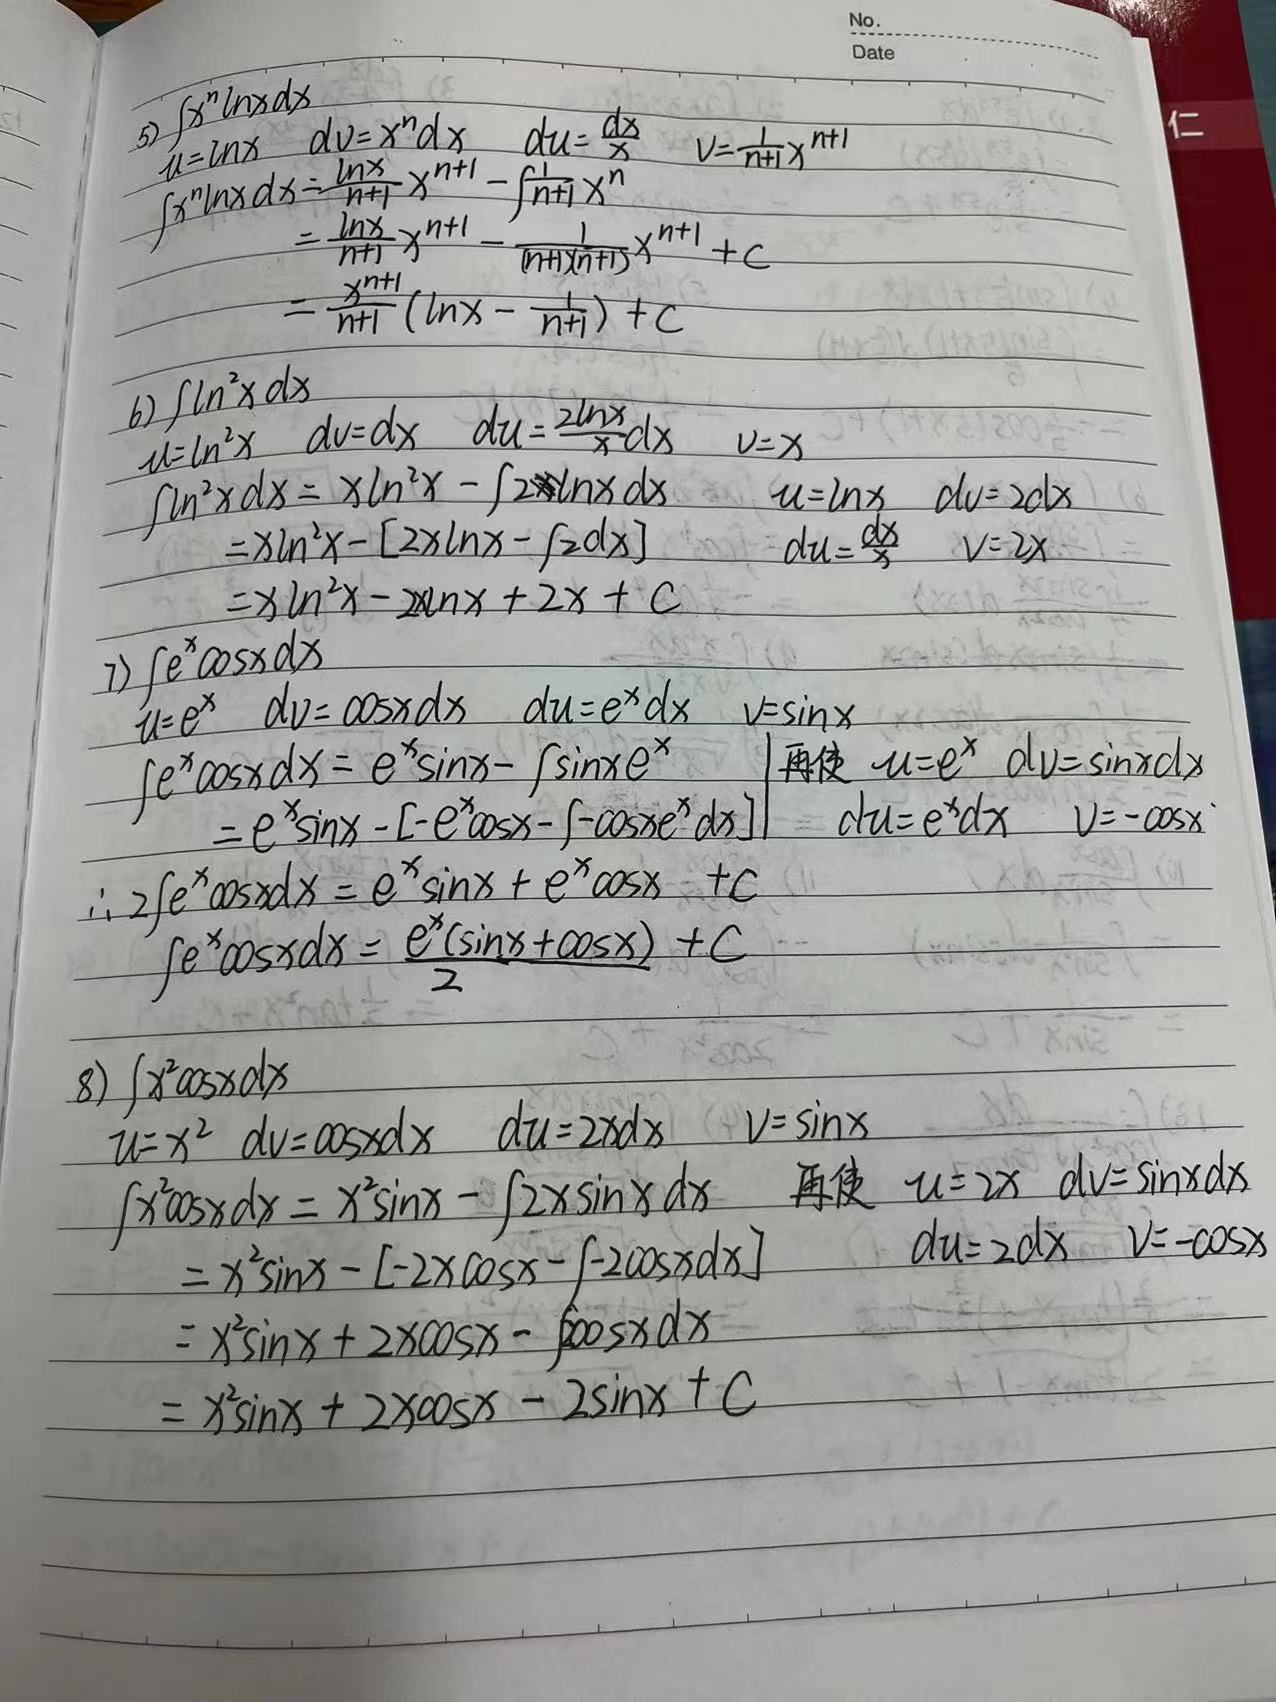 No.
Date
仁
5) ∫xⁿlnxdx
u=lnx dv=xⁿdx du=dx/x v=1/(n+1) xⁿ⁺¹
∫xⁿlnxdx=lnx/(n+1) xⁿ⁺¹-∫1/(n+1) xⁿ
=lnx/(n+1) xⁿ⁺¹-1/((n+1)(n+1)) xⁿ⁺¹+C
=xⁿ⁺¹/(n+1) (lnx-1/(n+1))+C
6) ∫ln²xdx
u=ln²x dv=dx du=2lnx/x dx v=x
∫ln²xdx=xln²x-∫2lnxdx u=lnx dv=2dx
=xln²x-[2xlnx-∫2dx] du=dx/x v=2x
=xln²x-2xlnx+2x+C
7) ∫eˣcosxdx
u=eˣ dv=cosxdx du=eˣdx v=sinx
∫eˣcosxdx=eˣsinx-∫sinxeˣ 再使 u=eˣ dv=sinxdx
=eˣsinx-[-eˣcosx-∫-cosxeˣdx] du=eˣdx v=-cosx
∴2∫eˣcosxdx=eˣsinx+eˣcosx +C
∫eˣcosxdx=eˣ(sinx+cosx)/2 +C
8) ∫x²cosxdx
u=x² dv=cosxdx du=2xdx v=sinx
∫x²cosxdx=x²sinx-∫2xsinxdx 再使 u=2x dv=sinxdx
=x²sinx-[-2xcosx-∫-2cosxdx] du=2dx v=-cosx
=x²sinx+2xcosx-∫2cosxdx
=x²sinx+2xcosx-2sinx+C